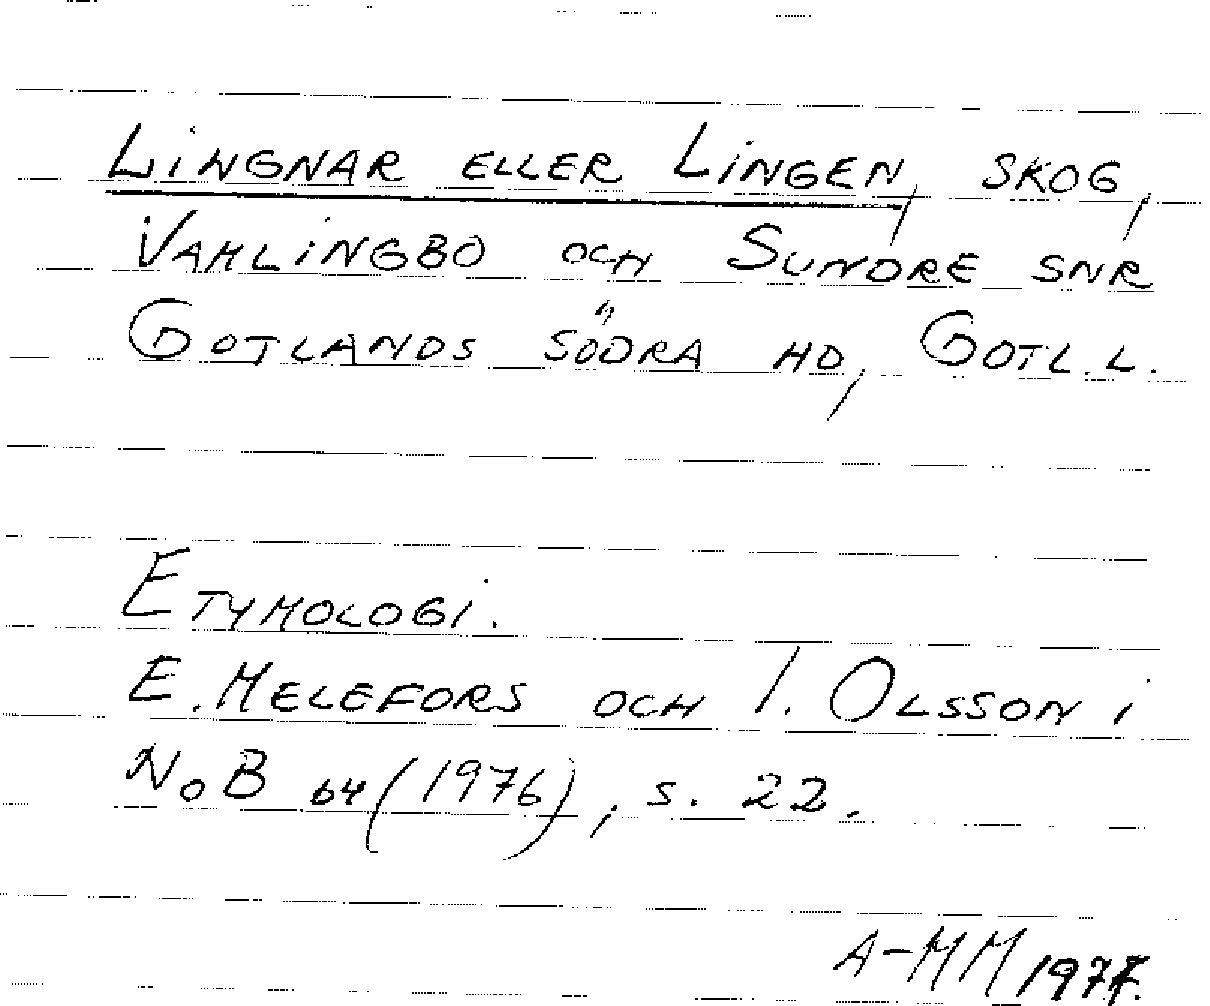 Lingnar eller Lingen, skog,
Vamlingbo och Sundre snr
Gotlands södra hd, Gotl. l.
Etymologi.
E. Melefors och I. Olsson i
NoB 64 (1976), s. 22.
A-MM 1977.